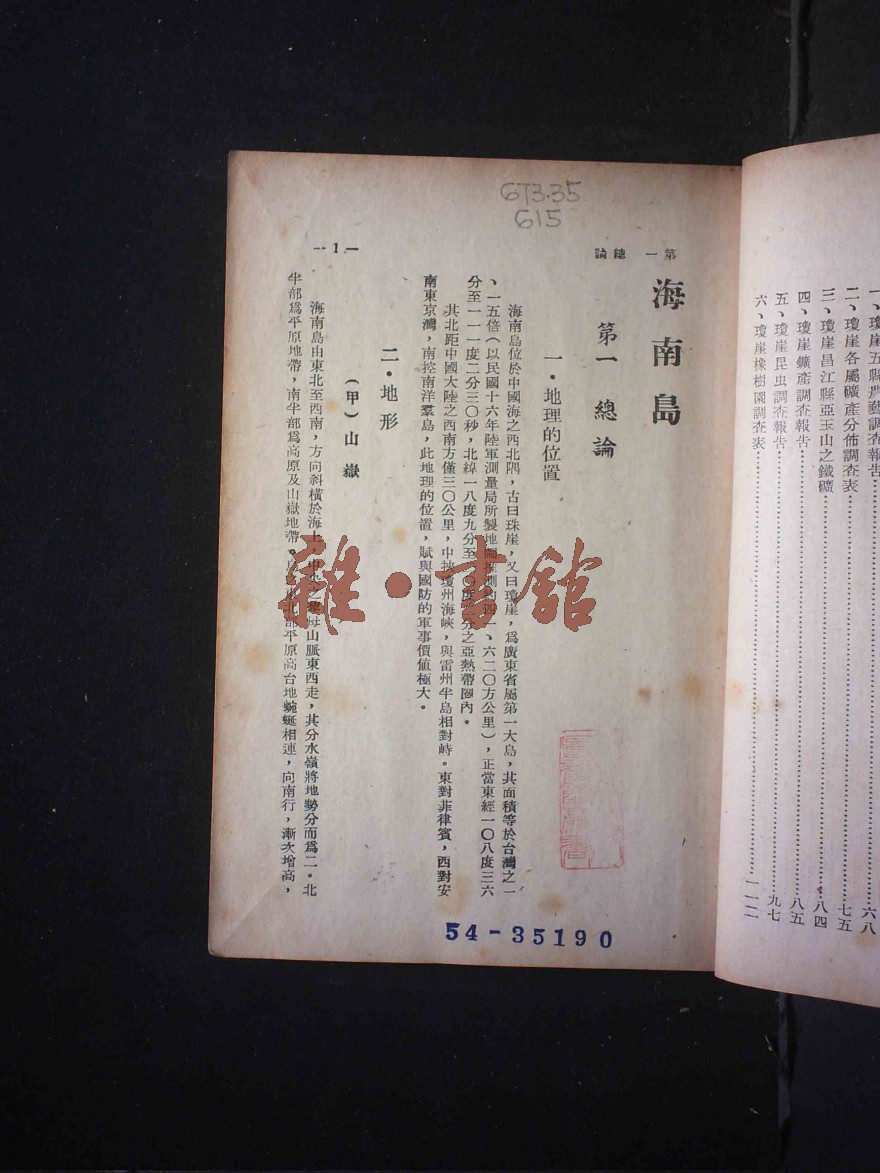 一、瓊崖五縣農藝調查報告……六八
二、瓊崖各屬礦產分佈調查表……七五
三、瓊崖昌江縣亞玉山之鐵礦……八四
四、瓊崖鑛產調查報告……八五
五、瓊崖昆虫調查報告……九七
六、瓊崖橡樹園調查表……一一二
673.35
615
第一 總論
海南島
第一 總論
一・地理的位置
海南島位於中國海之西北隅，古曰珠崖，又曰瓊崖，為廣東省屬第一大島，其面積等於台灣之一
、一五倍（以民國十六年陸軍測量局所製地圖推測約四一、六二〇方公里），正當東經一〇八度三六
分至一一一度二分三〇秒，北緯一八度九分至二〇度 分之亞熱帶圈內。
其北距中國大陸之西南方僅三〇公里，中挾瓊州海峽，與雷州半島相對峙。東對菲律賓，西對安
南東京灣，南控南洋羣島，此地理的位置，賦與國防的軍事價值極大。
二・地形
（甲）山嶽
海南島由東北至西南，方向斜橫於海上，中央之黎母山脈東西走，其分水嶺將地勢分而為二。北
半部為平原地帶，南半部為高原及山嶽地帶。島之東北部平原高台地蜿蜒相連，向南行，漸次增高，
—1—
雜・書館
54-35190